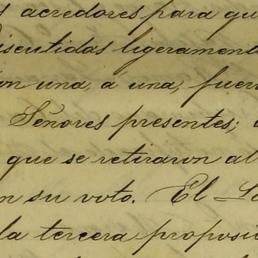 s acredores para qu
iscutidas ligerament
on una, a una, fuer
Señores presentes;
que se retiraron al
n su voto. El S
la tercera proposi